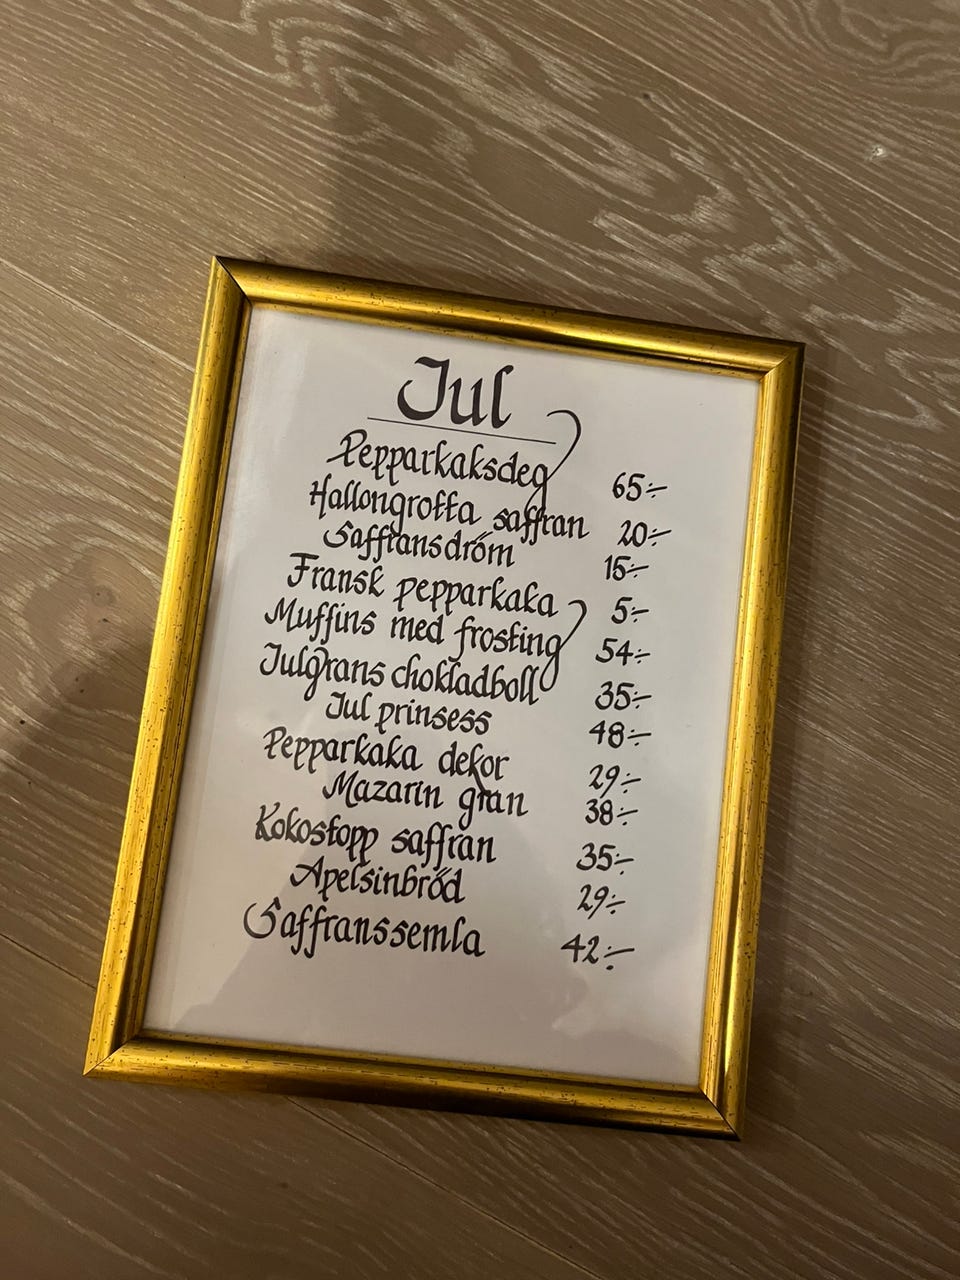 Jul
Pepparkaksdeg 65:-
Hallongrotta saffran 20:-
Saffransdröm 15:-
Fransk pepparkaka 5:-
Muffins med frosting 54:-
Julgrans chokladboll 35:-
Jul prinsess 48:-
Pepparkaka dekor 29:-
Mazarin gran 38:-
Kokostopp saffran 35:-
Apelsinbröd 29:-
Saffranssemla 42:-